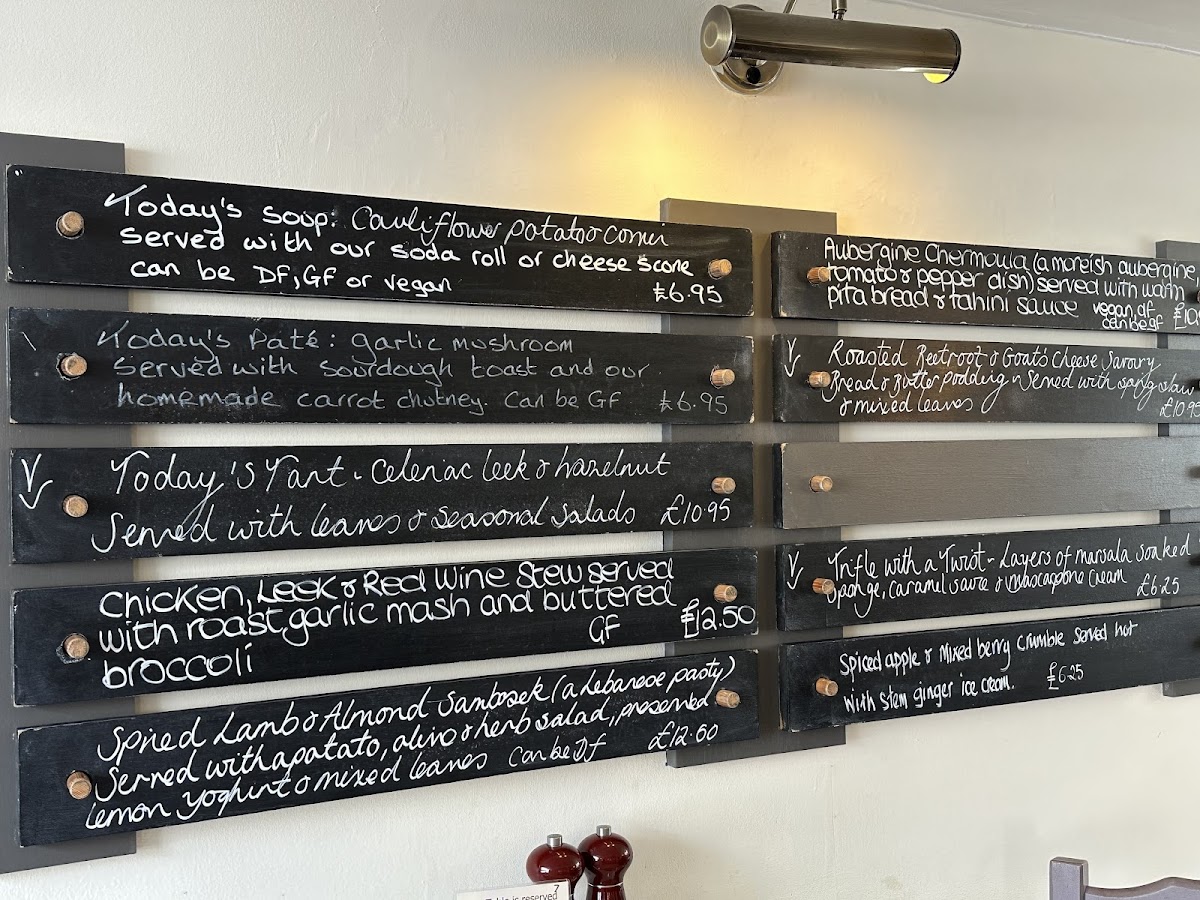 Today's Soup: Cauliflower potato & cumin
served with our soda roll or cheese scone
can be DF, GF or vegan
£6.95
Today's Paté: garlic mushroom
Served with sourdough toast and our
homemade carrot chutney. Can be GF £6.95
V
Today's Tart - Celeriac leek & hazelnut
Served with leaves & seasonal salads £10.95
Chicken, Leek & Red Wine Stew served
with roast garlic mash and buttered
broccoli GF £12.50
Spiced Lamb & Almond Sambosek (a Lebanese pasty)
Served with a potato, olive & herb salad, preserved
lemon yoghurt & mixed leaves can be DF £12.60
Aubergine Chermoula (a moreish aubergine
tomato & pepper dish) served with warm
pita bread & tahini sauce vegan, df
can be gf
V
Roasted Beetroot & Goat's Cheese Savoury
Bread & Butter Pudding - Served with slaw
& mixed leaves £10.95
V
Trifle with a Twist - Layers of marsala soaked
Sponge, caramel sauce & mascarpone cream £6.25
Spiced apple & mixed berry crumble served hot
with stem ginger ice cream. £6.25
7
is reserved